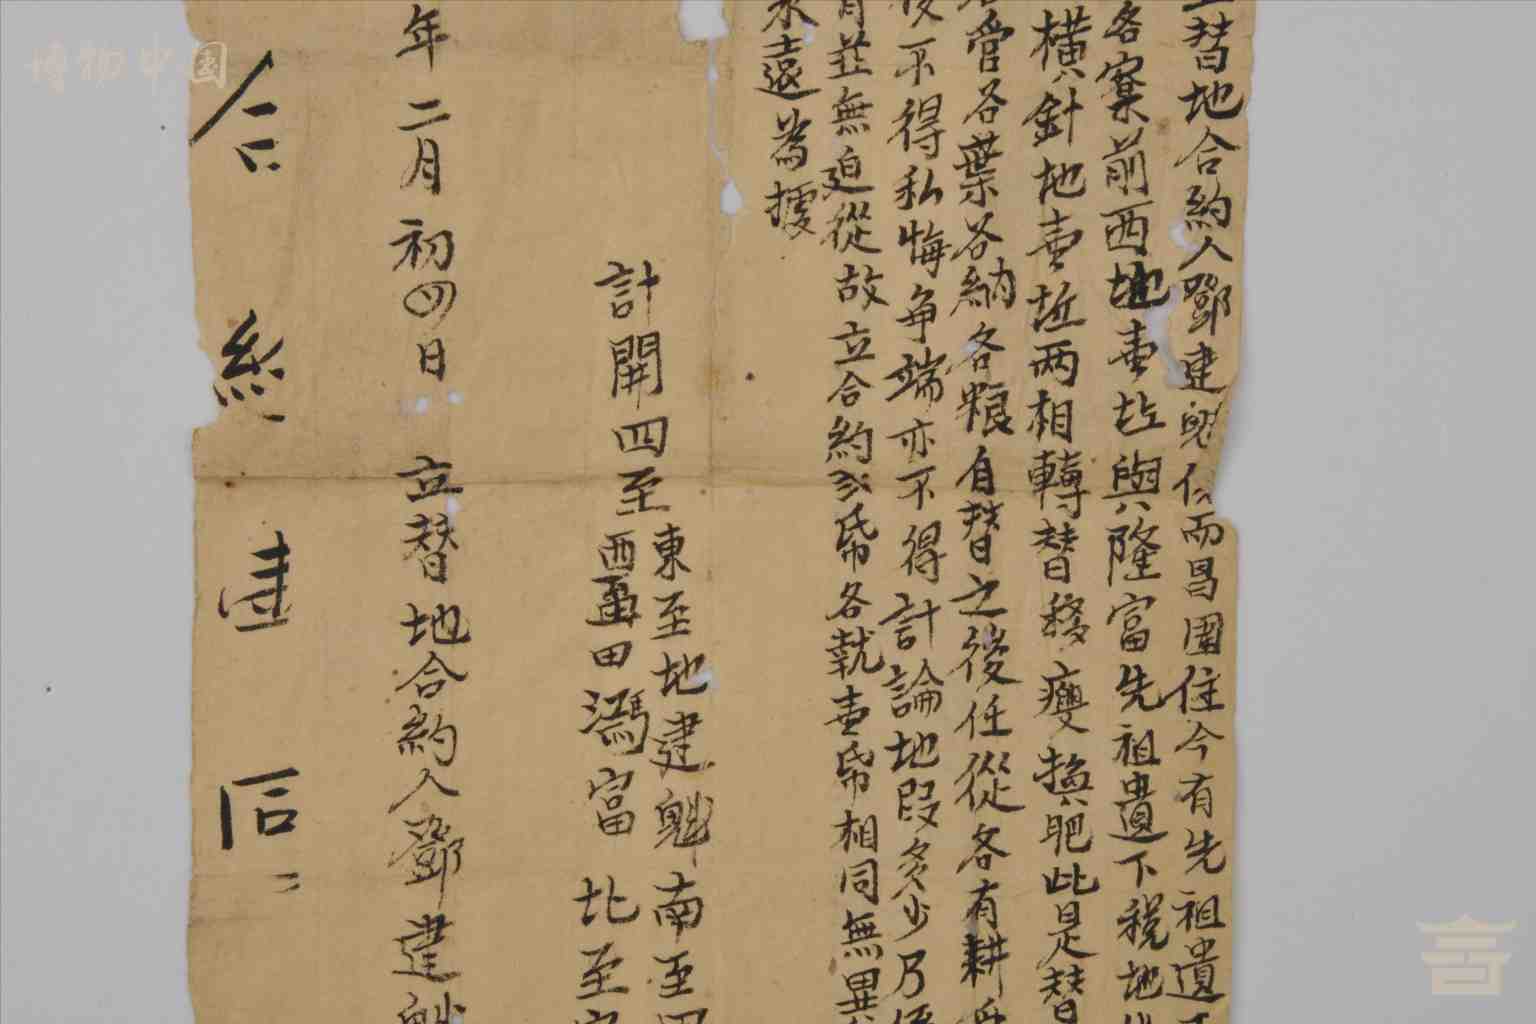 替地合約人鄧建魁仁而昌圍住今有先祖遺
各寮前西地壹坵與隆富先祖遺下稅地
橫針地壹坵兩相轉替移瘦換肥此是替
管各葉各納各粮自替之後任從各有耕
後不得私悔争端亦不得計論地段多少乃
並無迫從故立合約弍帋各執壹帋相同無異
永遠為據
計開四至
東至地建魁南至
西至田馮富北至
年二月初四日立替地合約人鄧建魁
合
壹
博物中国